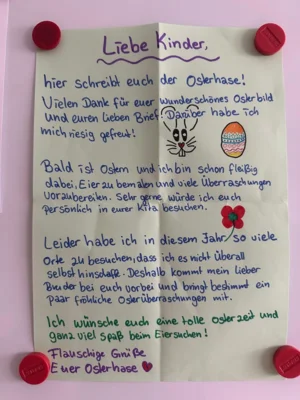 Liebe Kinder,
hier schreibt euch der Osterhase!
Vielen Dank für euer wunderschönes Osterbild
und euren lieben Brief. Darüber habe ich
mich riesig gefreut!
Bald ist Ostern und ich bin schon fleißig
dabei, Eier zu bemalen und viele Überraschungen
vorzubereiten. Sehr gerne würde ich euch
persönlich in eurer Kita besuchen.
Leider habe ich in diesem Jahr so viele
Orte zu besuchen, dass ich es nicht überall
selbst hinschaffe. Deshalb kommt mein lieber
Bruder bei euch vorbei und bringt bestimmt ein
paar fröhliche Osterüberraschungen mit.
Ich wünsche euch eine tolle Osterzeit und
ganz viel Spaß beim Eiersuchen!
Flauschige Grüße
Euer Osterhase